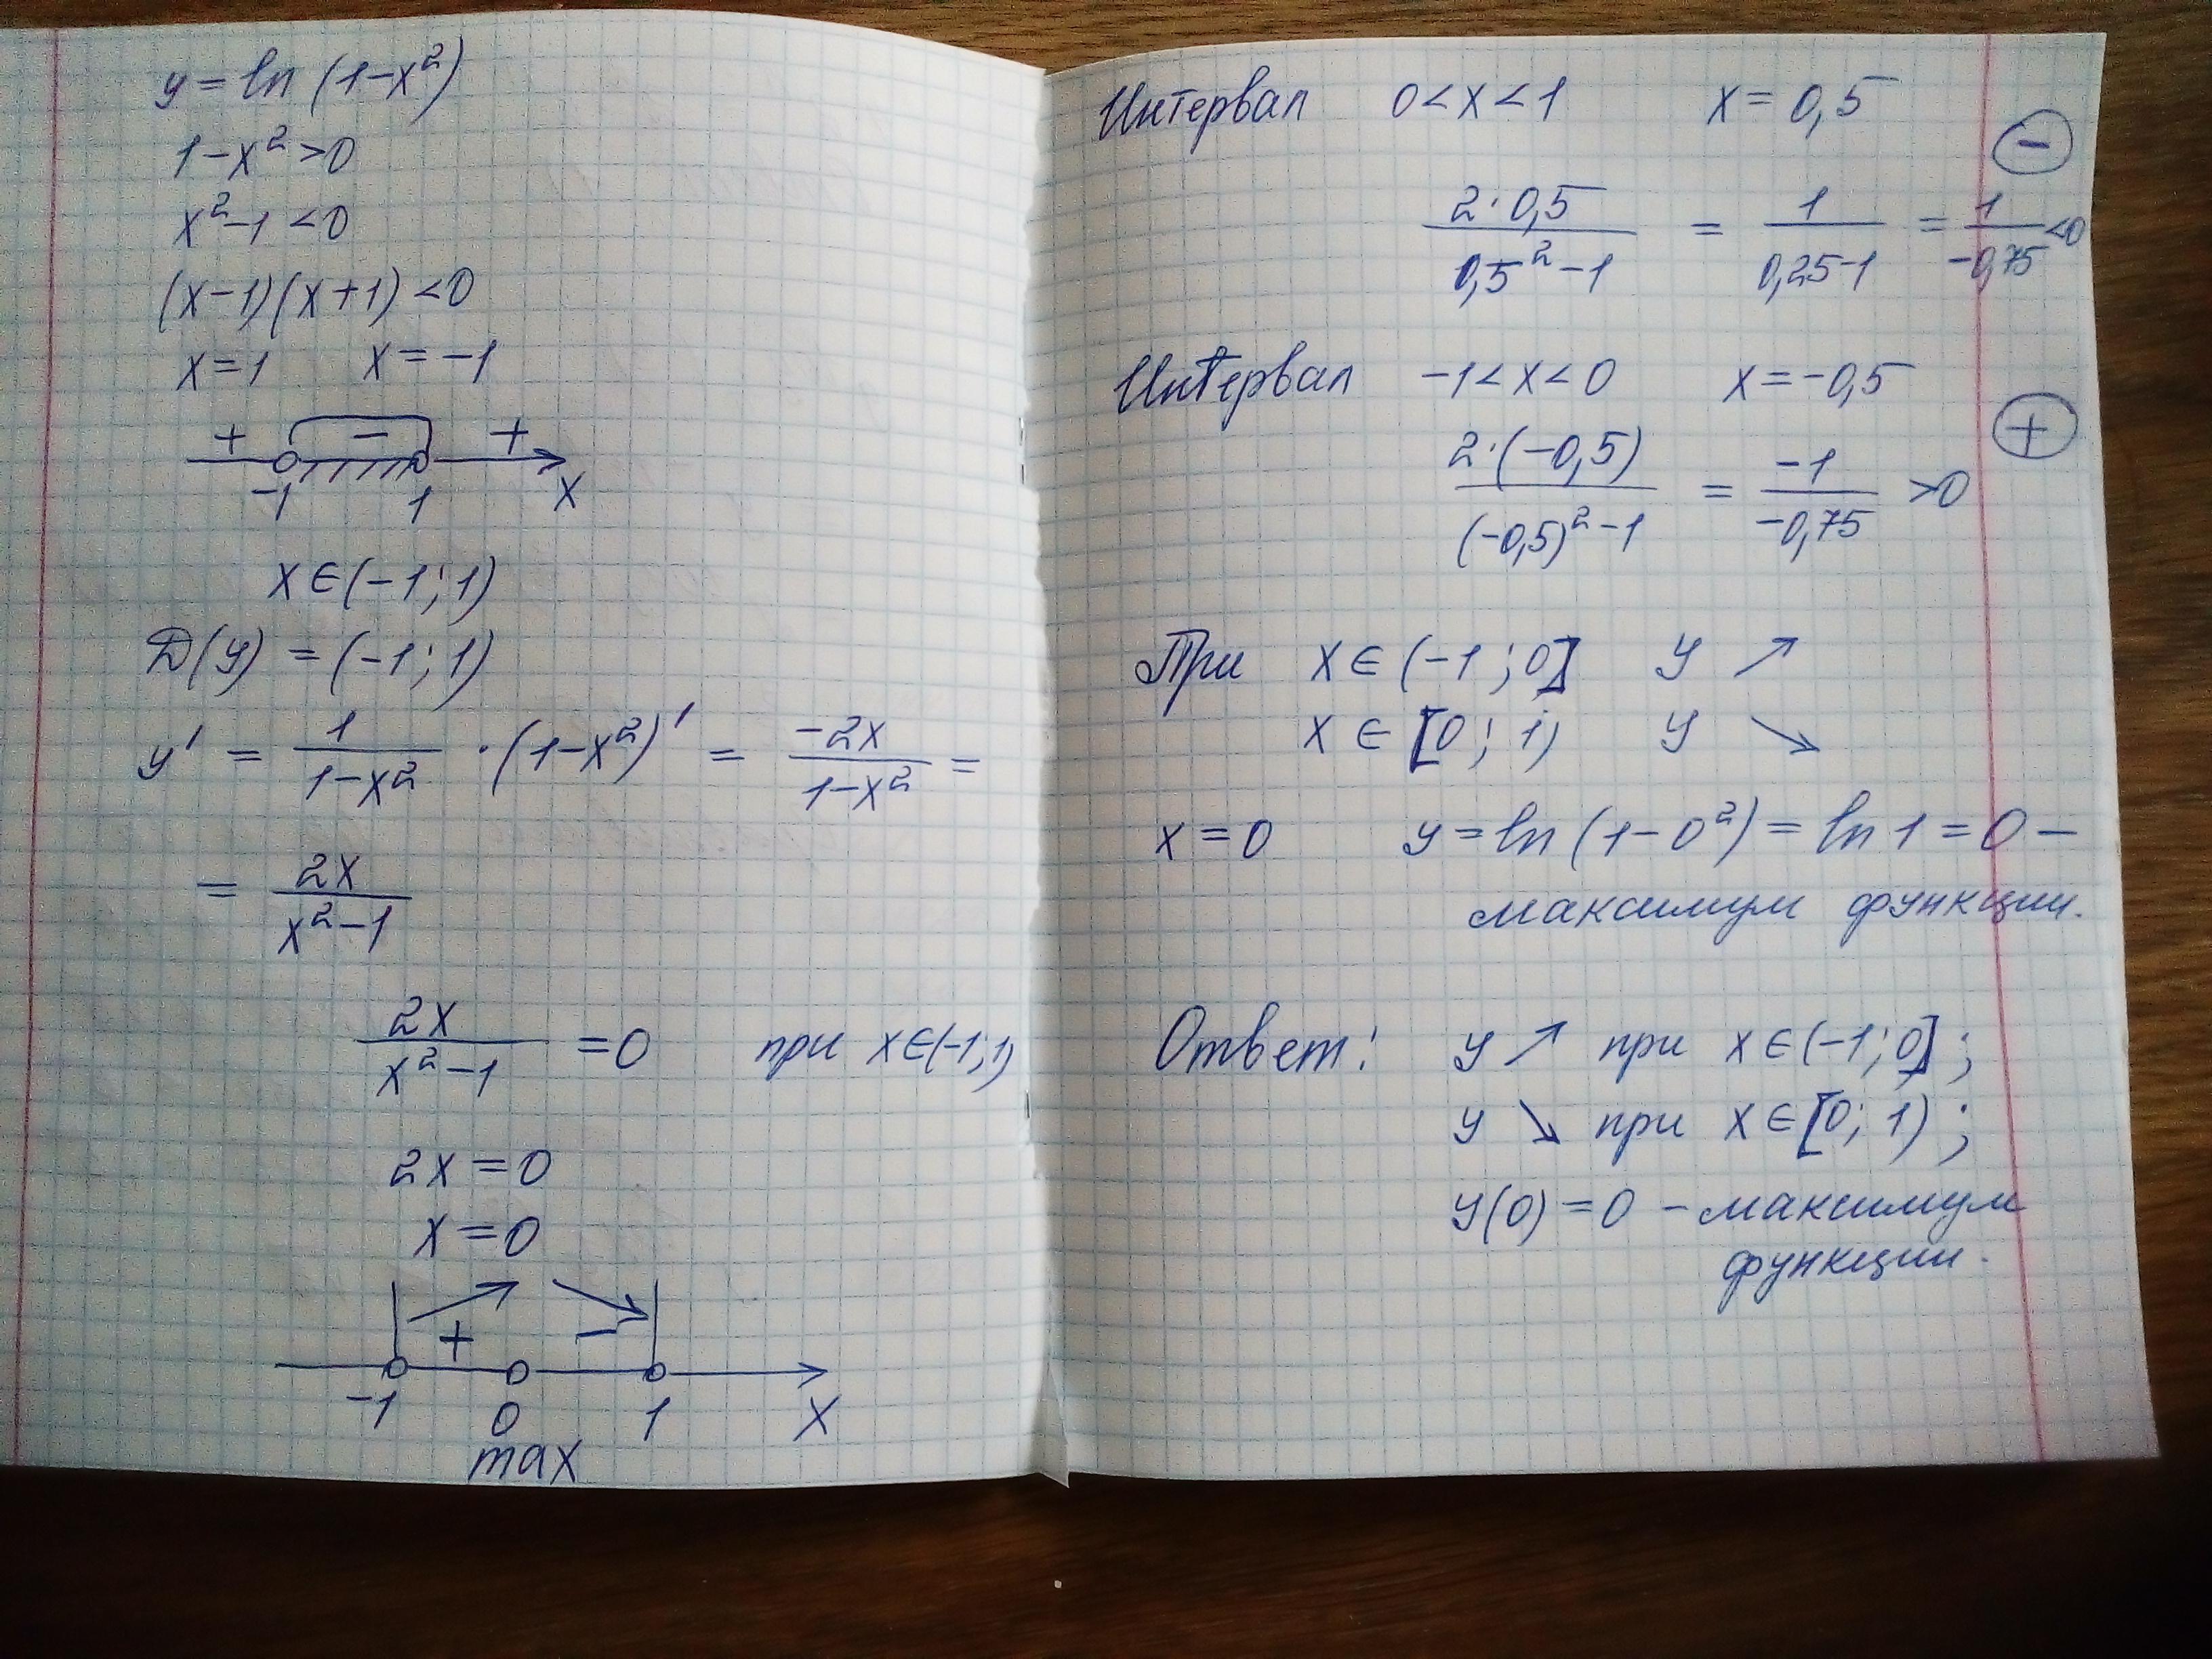 y = ln (1-x²)
1-x² >0
x²-1 <0
(x-1)(x+1) <0
x=1 x=-1
+ - +
-1 1 x
x∈(-1; 1)
D(y) = (-1; 1)
y' = 1/(1-x²) · (1-x²)' = -2x/(1-x²) =
= 2x/(x²-1)
2x/(x²-1) =0 при x∈(-1; 1)
2x=0
x=0
+ -
-1 0 1 x
max
Интервал 0<x<1 x= 0,5
-
2·0,5/(0,5²-1) = 1/(0,25-1) = 1/(-0,75) <0
Интервал -1<x<0 x=-0,5
+
2·(-0,5)/((-0,5)²-1) = -1/(-0,75) >0
При x∈(-1; 0] y ↗
x∈[0; 1) y ↘
x=0 y=ln(1-0²)=ln 1=0 –
максимум функции.
Ответ: y ↗ при x∈(-1; 0];
y ↘ при x∈[0; 1);
y(0)=0 – максимум
функции.